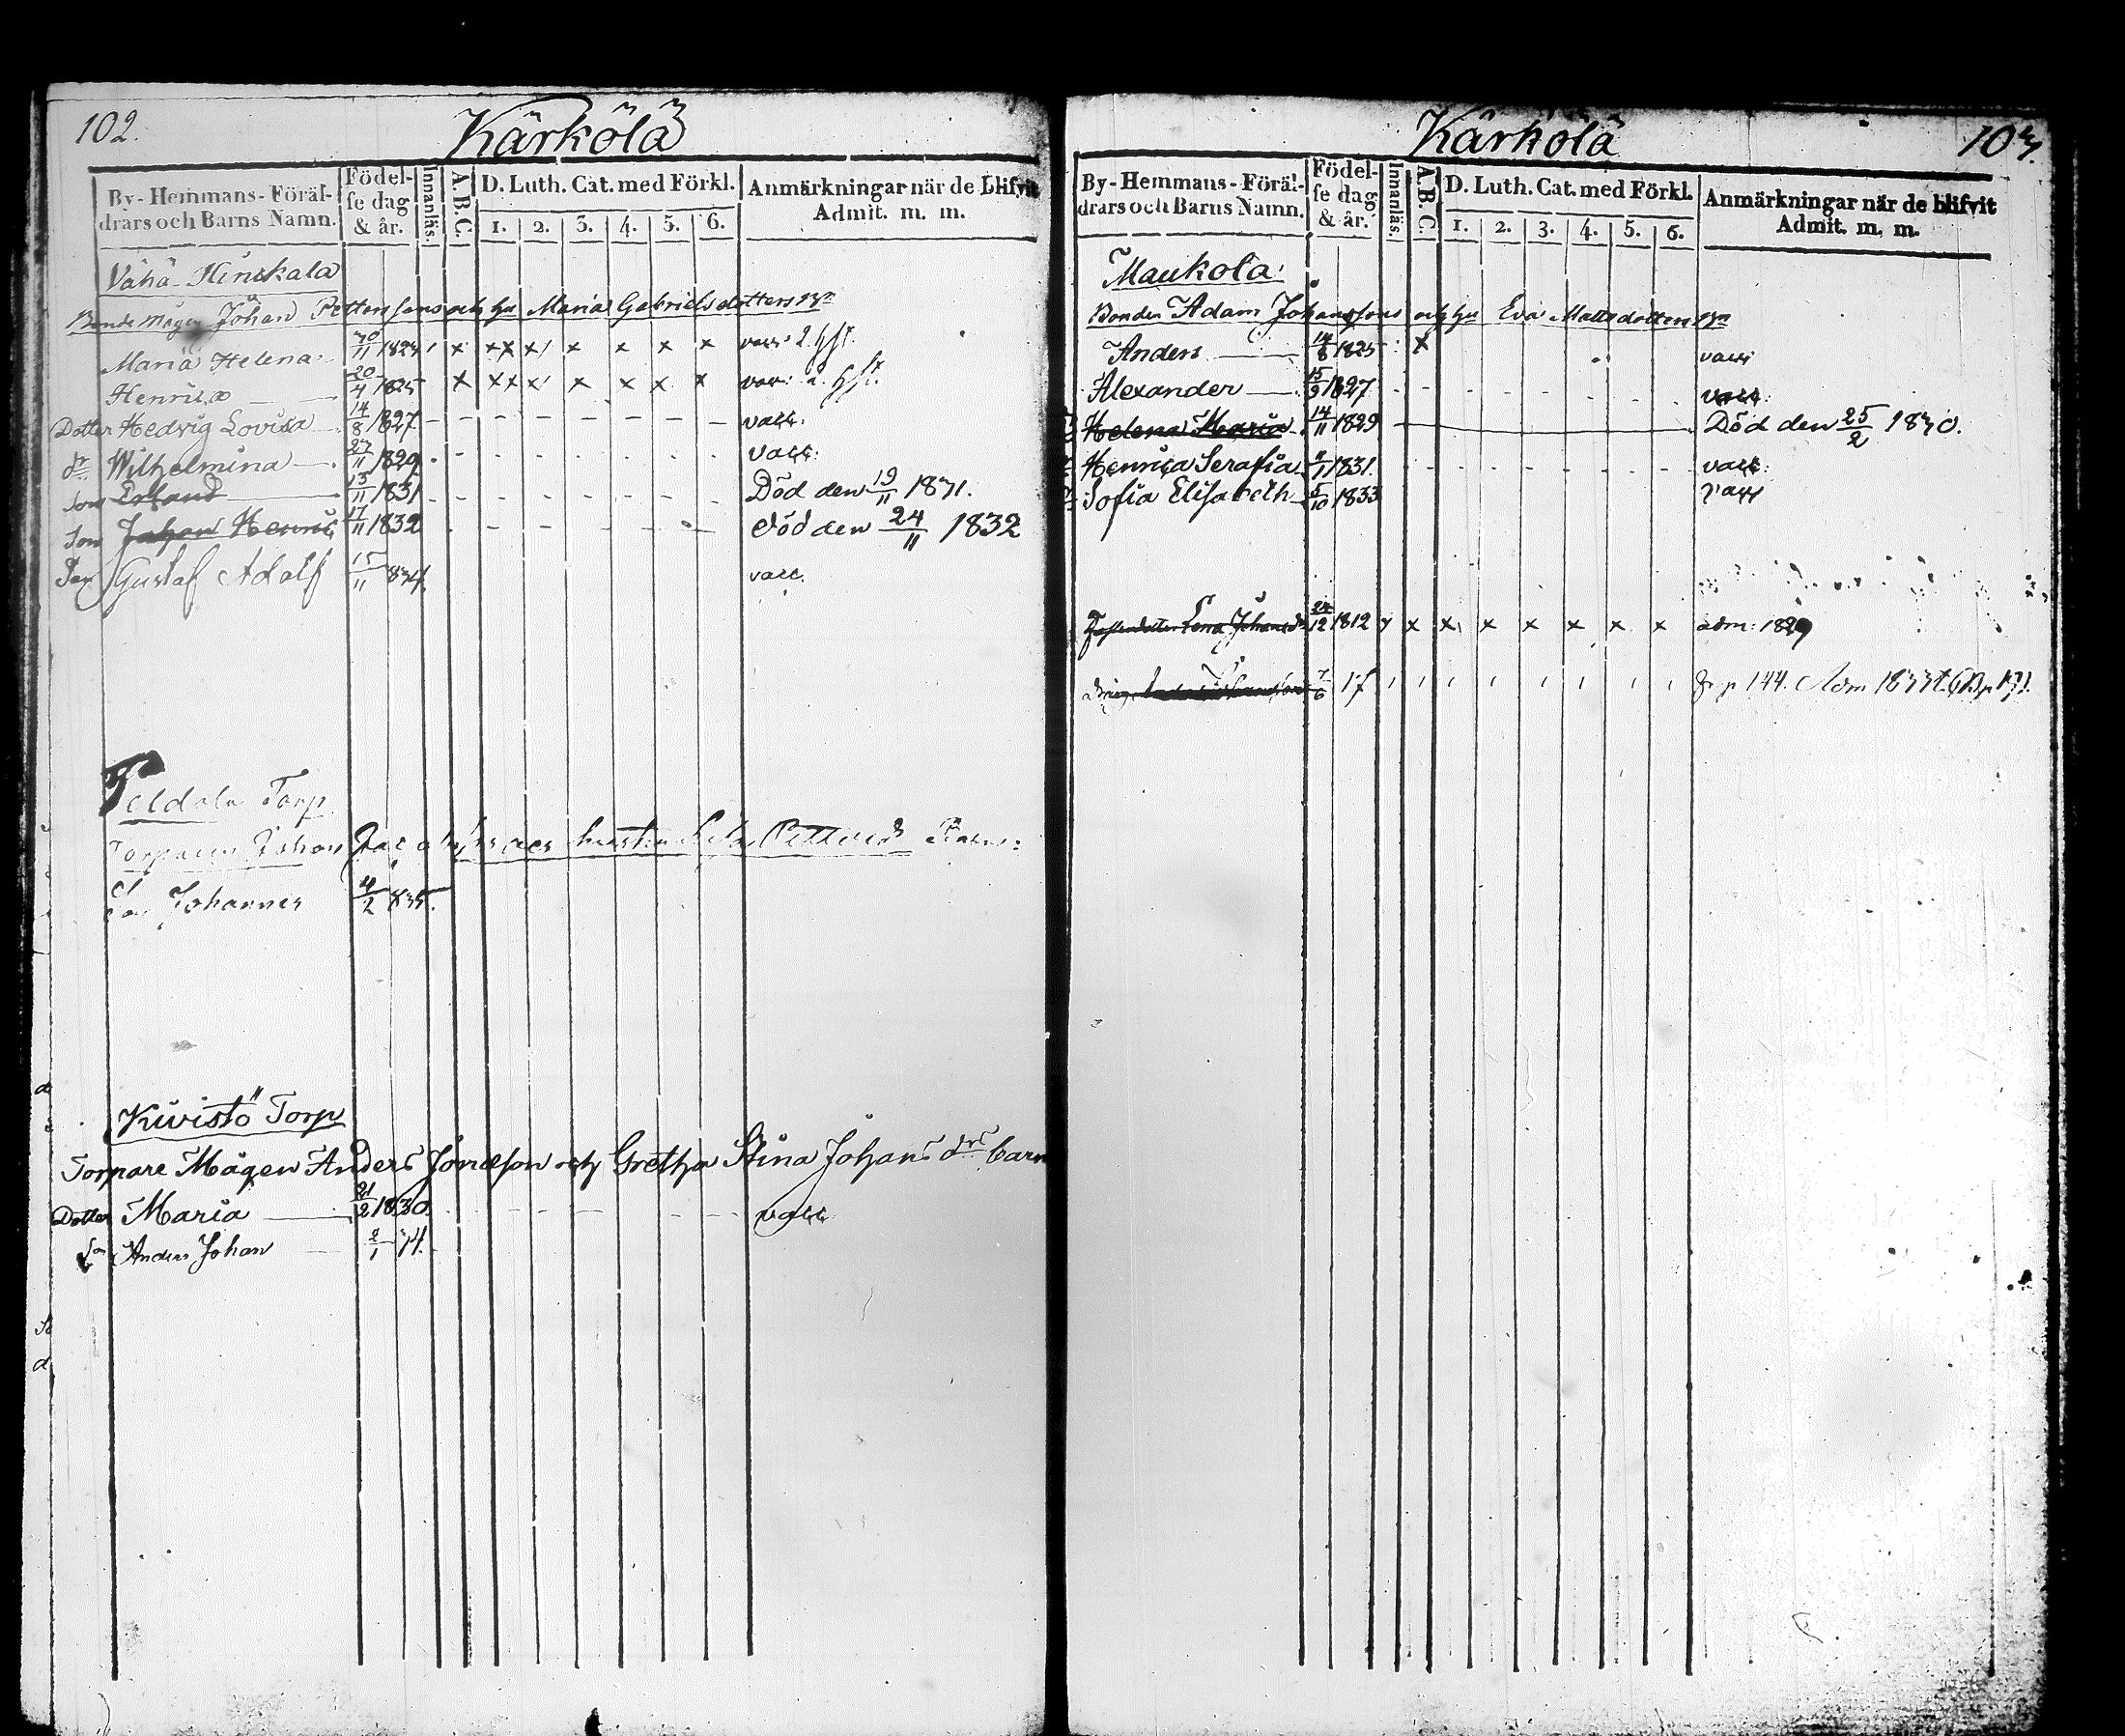 102.
Kärkölä
By-Hemmans-Föräl-
drars och Barns Namn.
Födel-
se dag
& år.
Innanläs.
A.B.C.
D. Luth. Cat. med Förkl.
1. 2. 3. 4. 5. 6.
Anmärkningar när de blifvit
Admit. m. m.
Vähä-Hinskala
Bonde Mågen Johan Pettersons och hu Maria Gabrielsdotters
Maria Helena 30/11 1823 x xx x x x x x
Henrica 20/4 1825 x xx x x x x x
Dotter Hedvig Lovisa 14/8 1827 vacc.
dr Wilhelmina 27/11 1829 vacc.
Son Erland 13/11 1831 Död den 19/11 1831.
Son Johan Henric 17/11 1832 död den 24/11 1832
Gustaf Adolf 15/11 834. vacc.
Torp
Torparen Johan hustru Pettersdr Barn:
Son Johannes 4/2 835.
Kivistö Torp
Torpare Mågen Anders och Gretha Stina Johans drs barn
Dotter Maria 21/2 1830 vacc
Son Anders Johan 2/1 34.
103.
Kärkölä
By-Hemmans-Föräl-
drars och Barns Namn.
Födel-
se dag
& år.
Innanläs.
A.B.C.
D. Luth. Cat. med Förkl.
1. 2. 3. 4. 5. 6.
Anmärkningar när de blifvit
Admit. m. m.
Maukola
Bonden Adam Johanssons och hu Eva Mattsdotters
Anders 14/8 1825 x vacc
Alexander 15/9 1827 vacc.
Helena Maria 14/11 1829 Död den 25/2 1830.
Henrica Serafia 1831. vacc.
Sofia Elisabeth 5/10 1833 vacc
Lena Johansdr 12 1812 x x x x x x x adm: 1829
7/6 17 p 144. Adm 1833